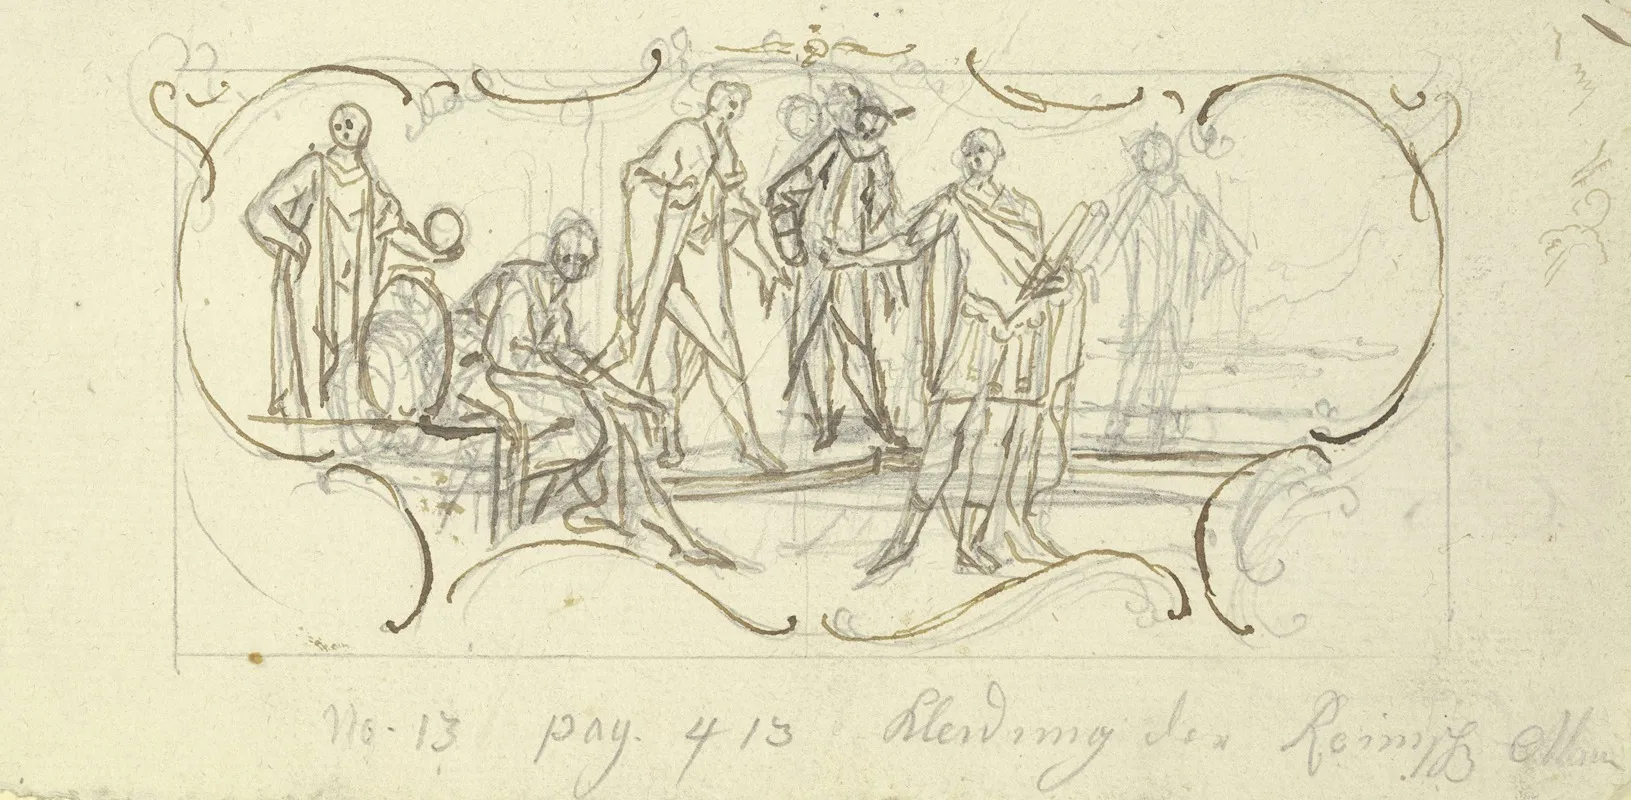 No. 13 pag. 413 Kleidung der Römisch